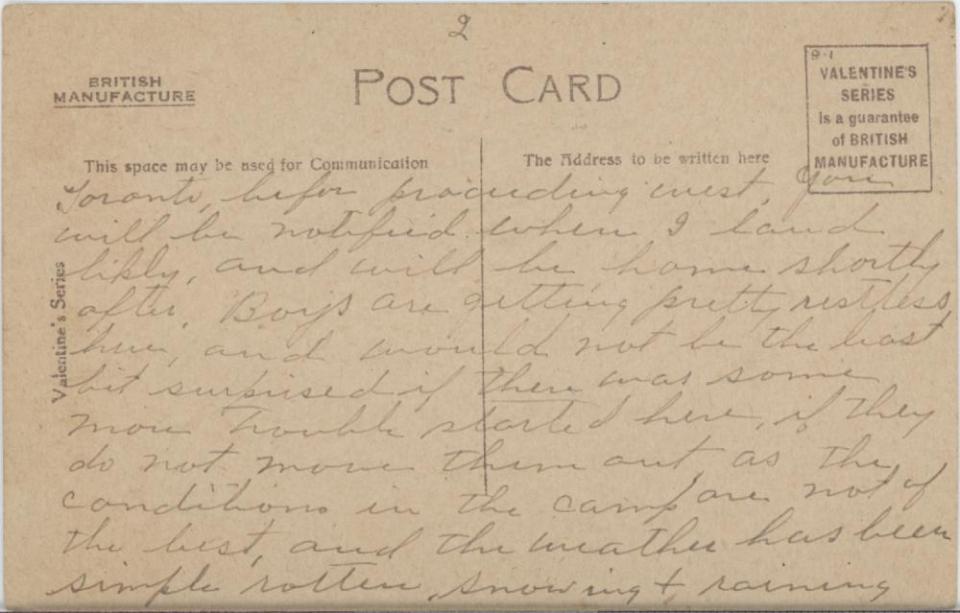 2
BRITISH
MANUFACTURE
POST CARD
8-1
VALENTINE'S
SERIES
is a guarantee
of BRITISH
MANUFACTURE
This space may be used for Communication
The Address to be written here
Valentine's Series
Toronto, befor proceeding west, you
will be notified when I land
likly, and will be home shortly
after. Boys are getting pretty restless
here, and would not be the least
bit surprised if there was some
more trouble started here, if they
do not move them out as the
conditions in the camp are not of
the best, and the weather has been
simple rotten, snowing & raining